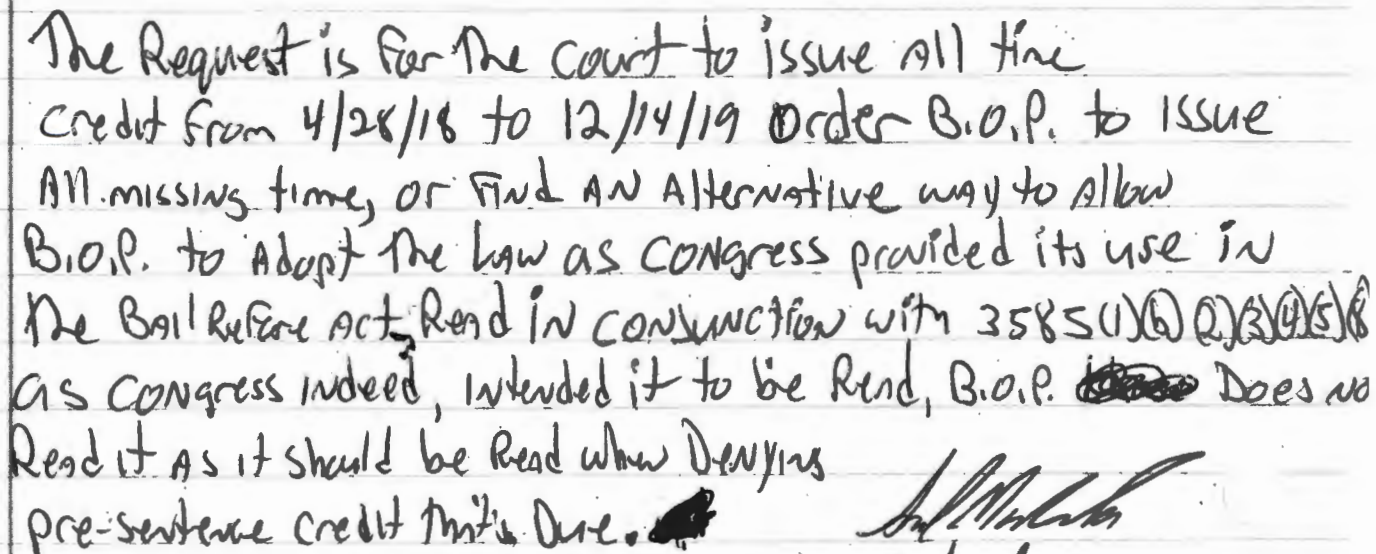 The Request is for The court to issue All time
credit from 4/28/18 to 12/14/19 Order B.O.P. to issue
All missing time, or Find AN Alternative way to Allow
B.O.P. to Adopt The Law as CONgress provided its use in
The BAil Reform Act, Read IN CONJUNCTION with 3585 (1)(b)(2)(3)(4)(5)
as CONgress indeed, intended it to be Read, B.O.P. Does no
Read it As it should be Read when Denying
pre-sentence credit that's Due.